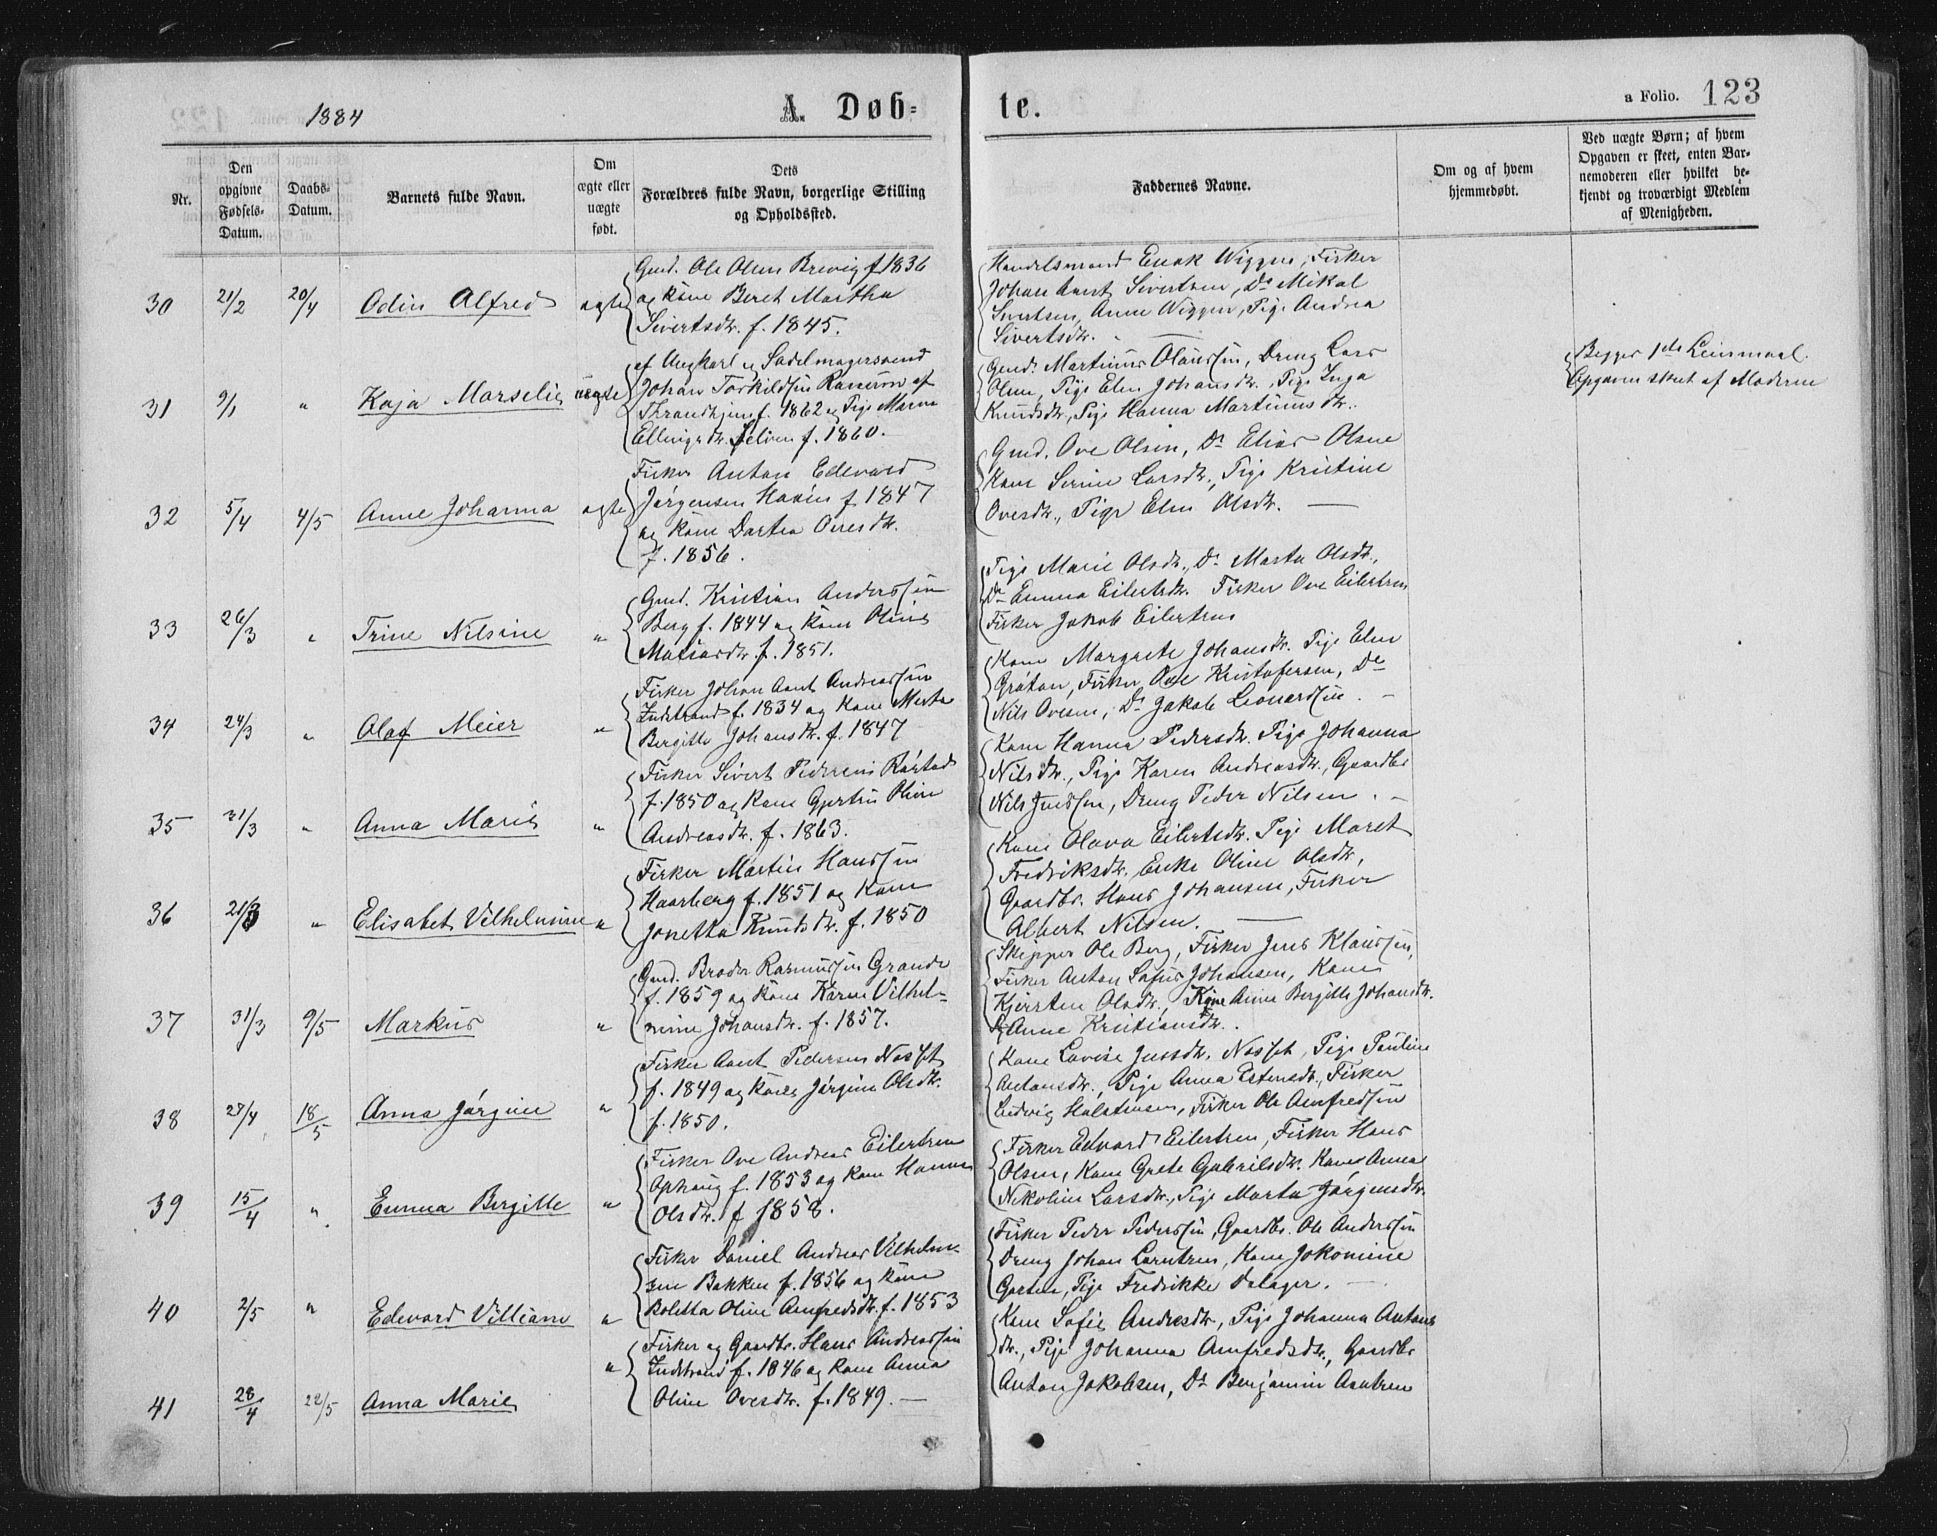 1884
A. Døb-
te.
a Folio. 123
Nr.
Den opgivne Fødsels-Datum.
Daabs-Datum.
Barnets fulde Navn.
Om ægte eller uægte født.
Dets Forældres fulde Navn, borgerlige Stilling og Opholdssted.
Faddernes Navne.
Om og af hvem hjemmedøbt.
Ved uægte Børn; af hvem Opgaven er skeet, enten Barnemoderen eller hvilket bekjendt og troværdigt Medlem af Menigheden.
30 21/2 20/4 Odin Alfred ægte
Gmd. Ole Olsen Brevig f. 1836
og Kone Beret Martha
Sivertsdtr. f. 1845.
Handelsmand Enok Wiggen, Fisker
Johan Arnt Sivertsen, Do Mikal
Sivertsen, Anne Wiggen, Pige Andrea
Sivertsdtr.
31 9/1 " Kaja Marselie uægte
af Ungkarl og Sadelmagersvend
Johan Torkildsen af
Throndhjem f. 1862 og Pige Maren
Ellingsdtr. Selven f. 1860.
Gmd. Martinus Olaussen, Dreng Lars
Olsen, Pige Elen Johansdtr., Pige Inga
Knudsdtr., Pige Hanna Martinusdtr.
Begges 1ste Leiermaal.
Opgaven skeet af Moderen
32 5/4 4/5 Anne Johanna ægte
Fisker Anton Edevard
Jørgensen f. 1847
og Kone Dortea Ovesdtr.
f. 1856.
Gmd. Ove Olsen, Do Elias Olsen
Kone Sirine Larsdtr., Pige Kristine
Ovesdtr., Pige Elen Olsdtr.
33 26/3 " Trine Nilsine "
Gmd. Kristian Anderssen
Berg f. 1844 og Kone Oline
Matiasdtr. f. 1851.
Pige Marie Olsdtr., Do Marta Olsdtr.,
Do Emma Eilertsdtr. Fisker Ove Eilertsen
Fisker Jakob Eilertsen
34 24/3 " Olaf Meier "
Fisker Johan Arnt Andreassen
Indstrand f. 1834 og Kone Marta
Bergitte Johansdtr. f. 1847
Kone Margrete Johansdtr. Pige Elen
Grøtan, Fisker Ove Kristofersen, Do
Nils Ovesen, Do Jakob Leonardsen.
35 31/3 " Anna Marie "
Fisker Sivert Pedersen
f. 1850 og Kone Gjertru Oline
Andreasdtr. f. 1863.
Kone Hanna Pedersdtr. Pige Johanna
Nilsdtr., Pige Karen Andreasdtr., Gaardbr.
Nils Jenssen, Dreng Peder Nilsen.
36 21/3 " Elisabet Vilhelmine "
Fisker Martin Hanssen
Haarberg f. 1851 og Kone
Jonetta Knudsdtr. f. 1850
Kone Olava Eilertsdtr. Pige Maret
Fredriksdtr. Enke Oline Olsdtr,
Gaardbr. Hans Johansen, Fisker
Albert Nilsen.
37 31/3 9/5 Markus "
Gmd. Broder Rasmussen Grande
f. 1859 og Kone Karen Vilhel-
mine Johansdtr. f. 1857.
Skipper Ole Berg, Fisker Jens Klaussen,
Fisker Anton Johansen, Kone
Kjersten Olsdtr., Kone Anne Bergitte Johansdtr.
Anne Kristiansdtr.
38 28/4 18/5 Anna Jørgine "
Fisker Arnt Pedersen Nesset
f. 1849 og Kone Jørgine Olsdtr.
f. 1850.
Kone Lovise Jensdtr. Nesset, Pige Pauline
Antonsdtr., Pige Anna Estensdtr., Fisker
Ludvig Halstensen, Fisker Ole Arnfredsen
39 15/4 " Emma Bergitte "
Fisker Ove Andreas Eilertsen
Ophaug f. 1853 og Kone Hanna
Olsdtr. f. 1858.
Fisker Edvard Eilertsen, Fisker Hans
Olsen, Kone Grete Gabrielsdtr. Kone Anna
Nikoline Larsdtr., Pige Marta Jørgensdtr.
40 2/5 " Edevard Villiam "
Fisker Daniel Andreas Vilhelm-
sen Bakken f. 1856 og Kone
Boletta Oline Arnfredsdtr. f. 1853
Fisker Peder Pederssen, Gaardbr. Ole Anderssen
Dreng Johan Larntsen, Kone Jokomine
Garten, Pige Fredrikke Dalager.
41 28/4 22/5 Anna Marie "
Fisker og Gaardbr. Hans Andreassen
Indstrand f. 1846 og Kone Anna
Oline Ovesdtr. f. 1849.
Kone Sofie Andresdtr, Pige Johanna Antons
dtr., Pige Johanna Arnfredsdtr., Gaardbr
Anton Jakobsen, Do Benjamin Arntsen